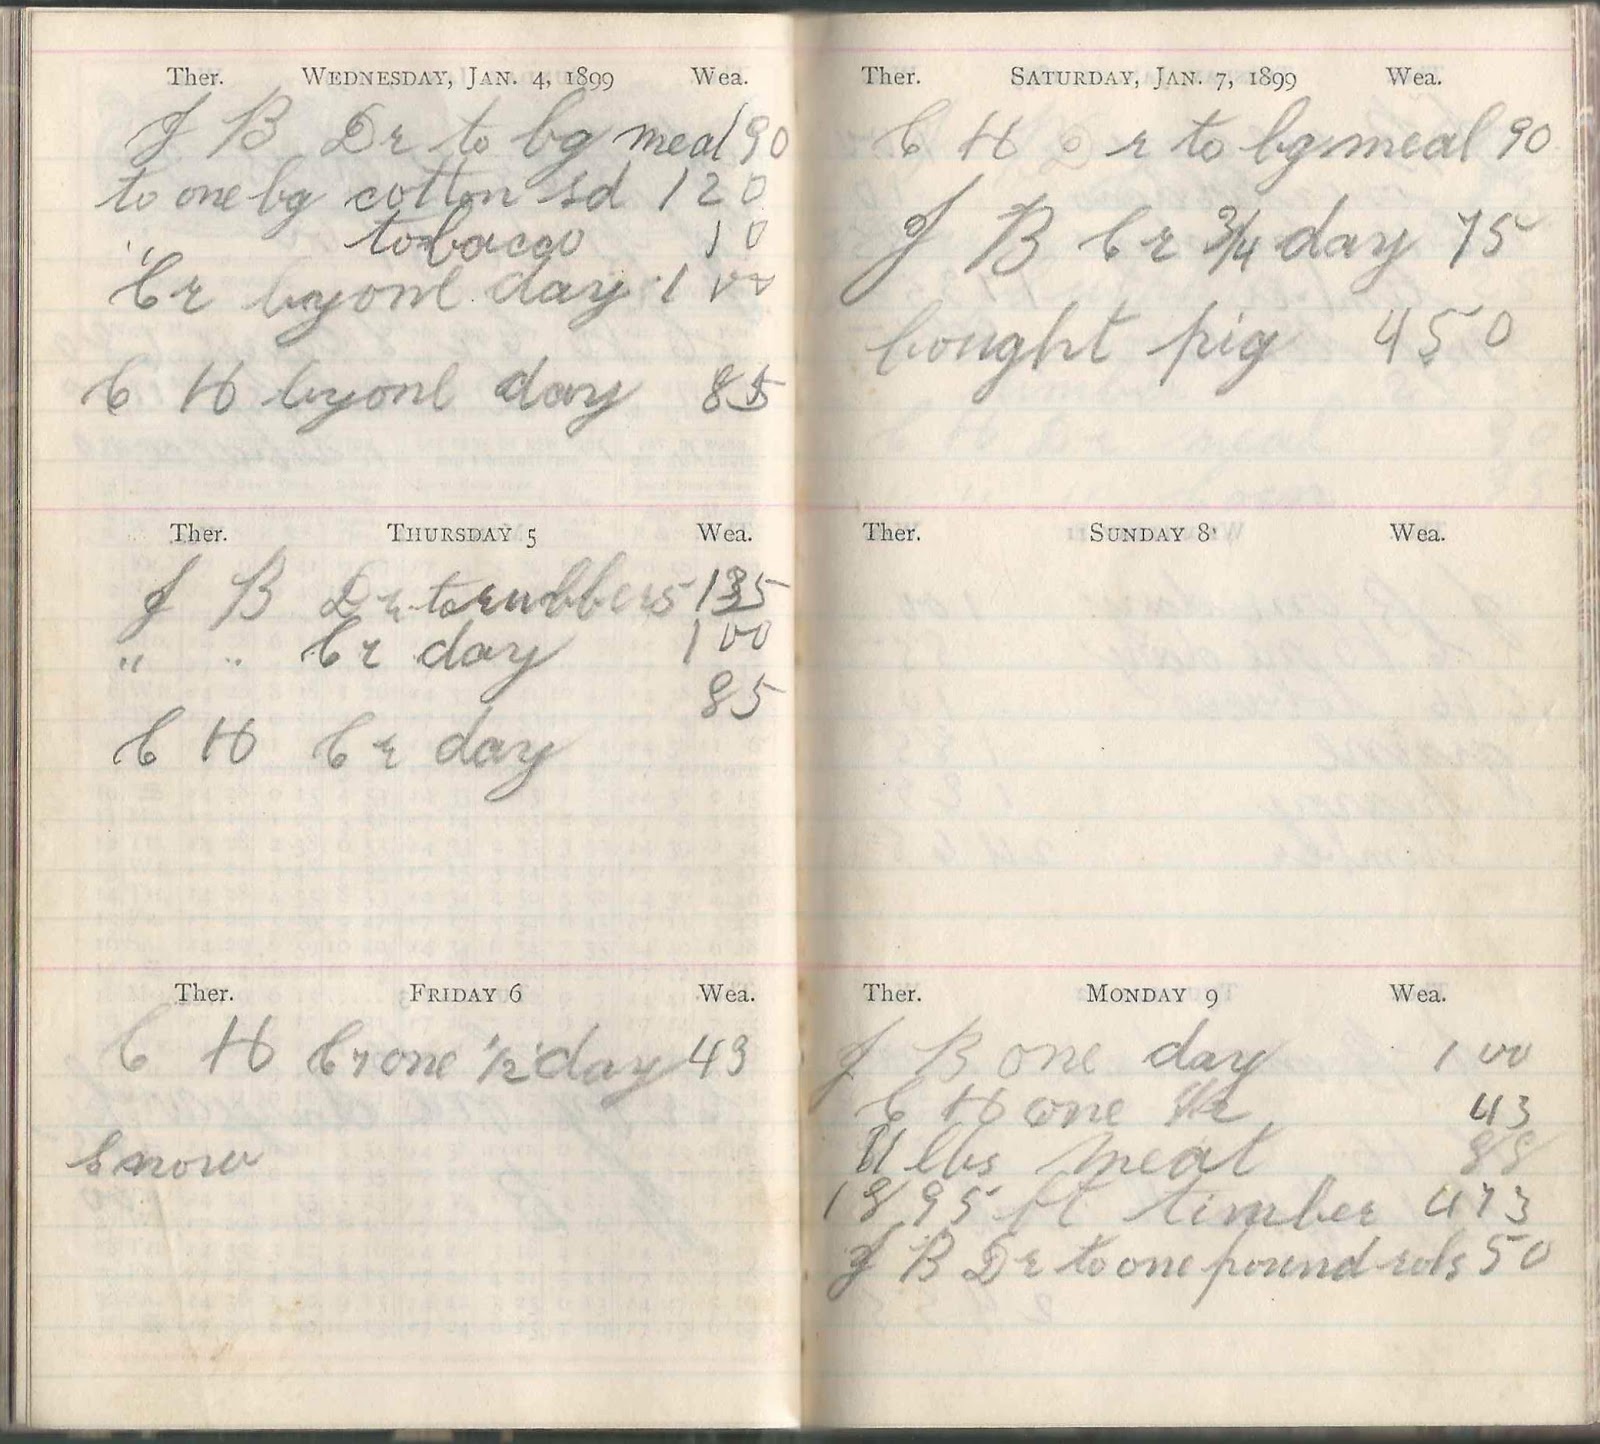 Ther. WEDNESDAY, JAN. 4, 1899 Wea.
J B Dr to bg meal 90
to one bg cotton sd 1 20
" tobacco 10
Cr by one day 1 00
C H by one day 85
Ther. THURSDAY 5 Wea.
J B Dr to rubbers 1 35
" " Cr day 1 00
85
C H Cr day
Ther. FRIDAY 6 Wea.
C H Cr one 1/2 day 43
Snow
Ther. SATURDAY, JAN. 7, 1899 Wea.
C H Dr to bg meal 90
J B Cr 3/4 day 75
bought pig 4 50
Ther. SUNDAY 8 Wea.
Ther. MONDAY 9 Wea.
J B one day 1 00
C H one 1/2 43
11 lbs meat 88
1895 ft timber 473
J B Dr to one pound 50